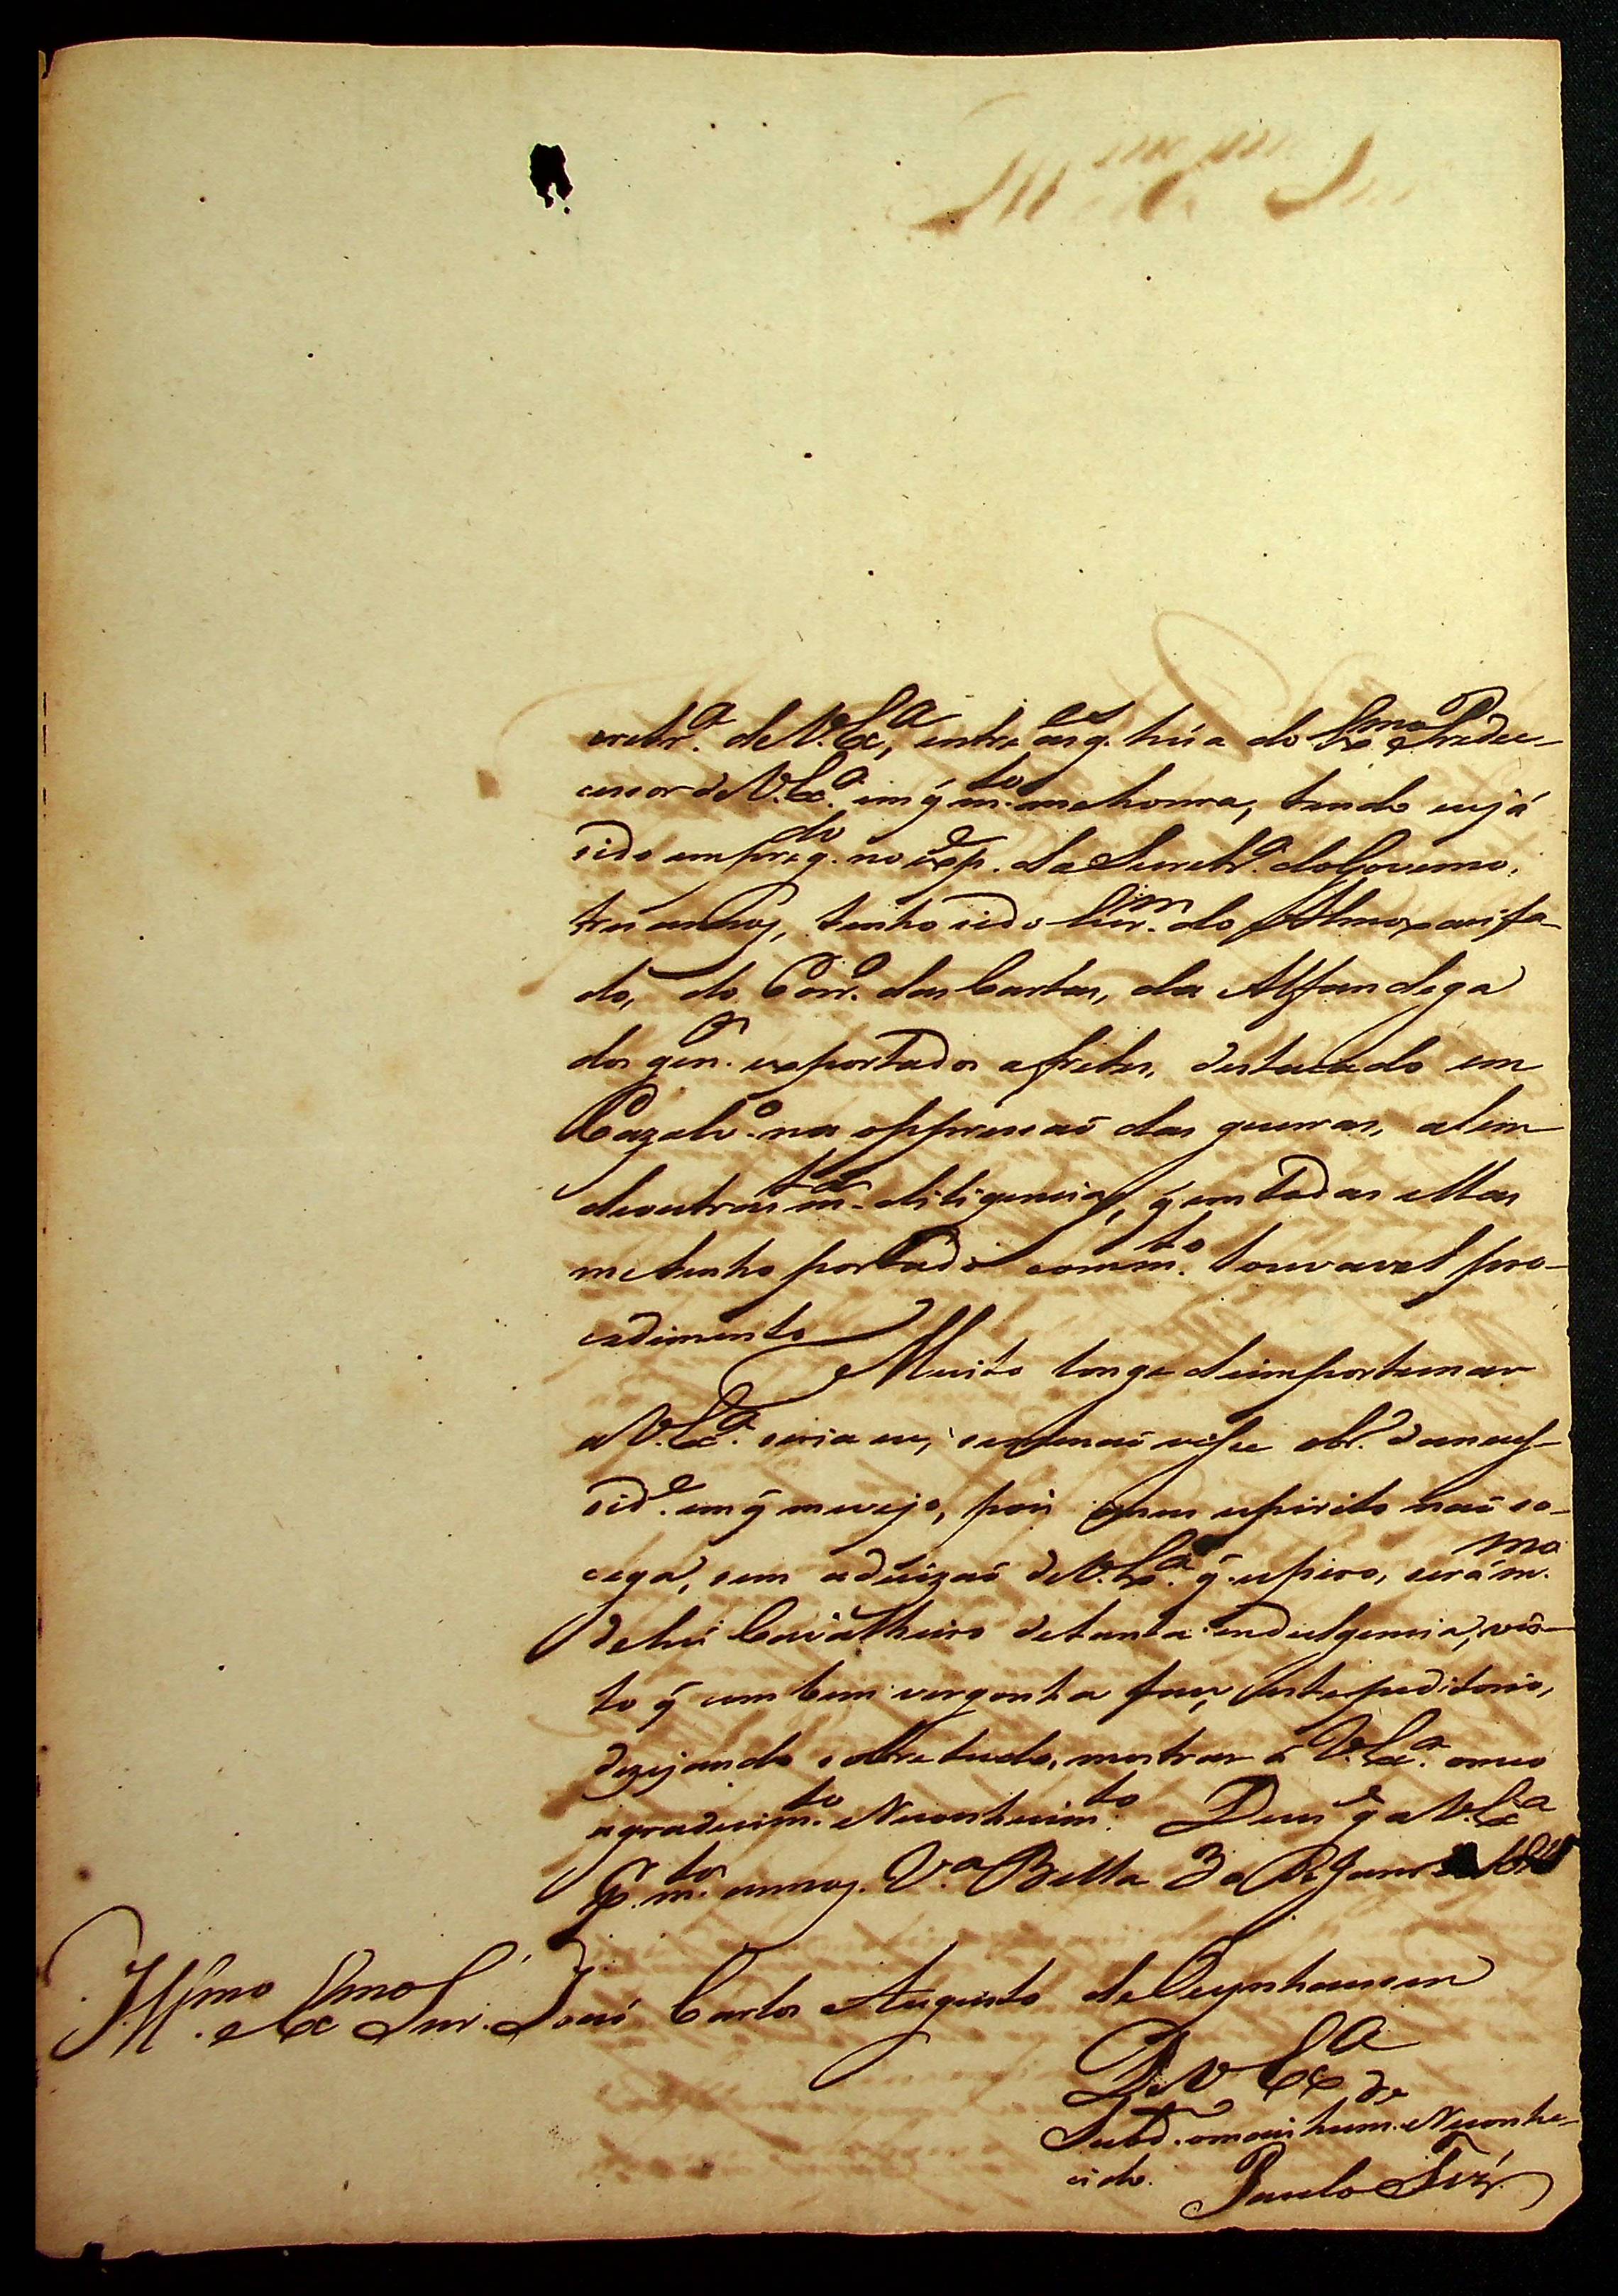 cretr.ª de V. Ex.ª, entre as q. húa do Ex.mo Prede-
cessor de V. Ex.ª em q̃ m.to me honra, tendo eu já
sido empreg.do no exp.e da Secretr.ª do Governo,
tres annos, tenho sido Escr.m do Almoxarifa-
do, do Corr.o das Cartas, da Alfandega
dos gen.os exportados a fretes, destacado em
Cazalv.o na oppressaõ das guerras, alem
de outras m.tas diligencias, q̃ em todas ellas
me tenho portado com m.to louvavel pro-
cedimento
Muito longe de importunar
a V. Ex.ª seria eu, se me naõ visse obr.o da neces-
sid.e em q̃ me vejo, pois o meu espirito naõ so-
cega, sem a decizaõ de V. Ex.ª q̃ espero, será m.mo
de hú Cavalheiro de tanta indulgencia, vis-
to q̃ com bem vergonha faço este peditorio,
dezejando sobre tudo, mostrar a V. Ex.ª o meo
agradecim.to e Reconhecim.to Deus g.e a V. Ex.ª
p.r m.tos annos. V.ª Bella 3 de Janr.o
Ill.mo e Ex.mo Snr. Joaõ Carlos Augusto de Oeynhausen
De V. Ex.ª
Subd.o o mais hum.de Reconhe-
cido.
Paulo Frz̃